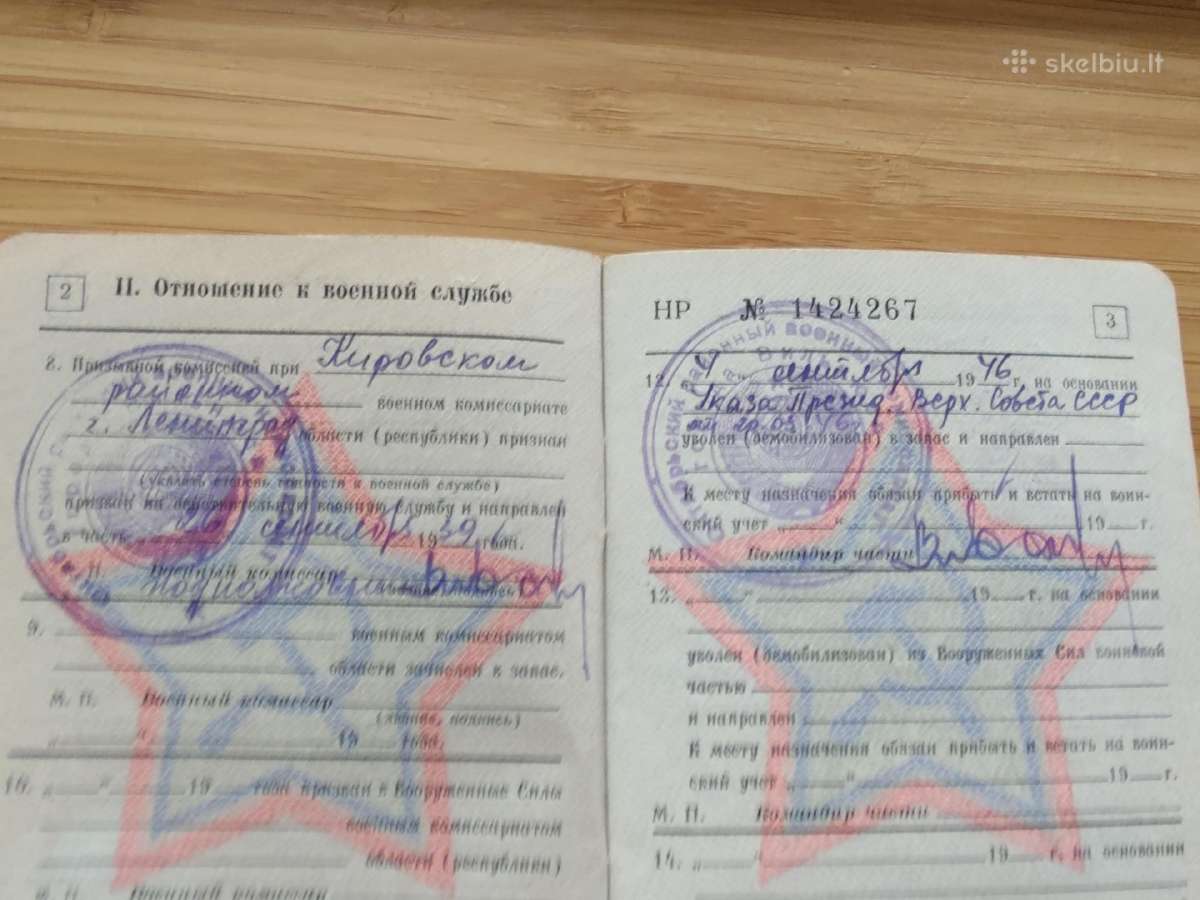 skelbiu.lt
2
II. Отношение к военной службе
8. Призывной комиссией при Кировском
районном военном комиссариате
г. Ленинград области (республики) признан
(указать степень годности к военной службе)
призван на действительную военную службу и направлен
в часть сентября 1939 года.
М. П. Военный комиссар
9. военным комиссариатом
области зачислен в запас.
М. П. Военный комиссар
(звание, подпись)
" " 19 года.
10. " " 19 года призван в Вооруженные Силы
военным комиссариатом
области (республики)
М. П. Военный комиссар
НР № 1424267
3
12. " " сентября 1946 г. на основании
Указа Презид. Верх. Совета СССР
уволен (демобилизован) в запас и направлен
К месту назначения обязан прибыть и встать на воин-
ский учет " " 19 г.
М. П. Командир части
13. " " 19 г. на основании
уволен (демобилизован) из Вооруженных Сил воинской
частью
и направлен
К месту назначения обязан прибыть и встать на воин-
ский учет " " 19 г.
М. П. Командир части
14. " " 19 г. на основании